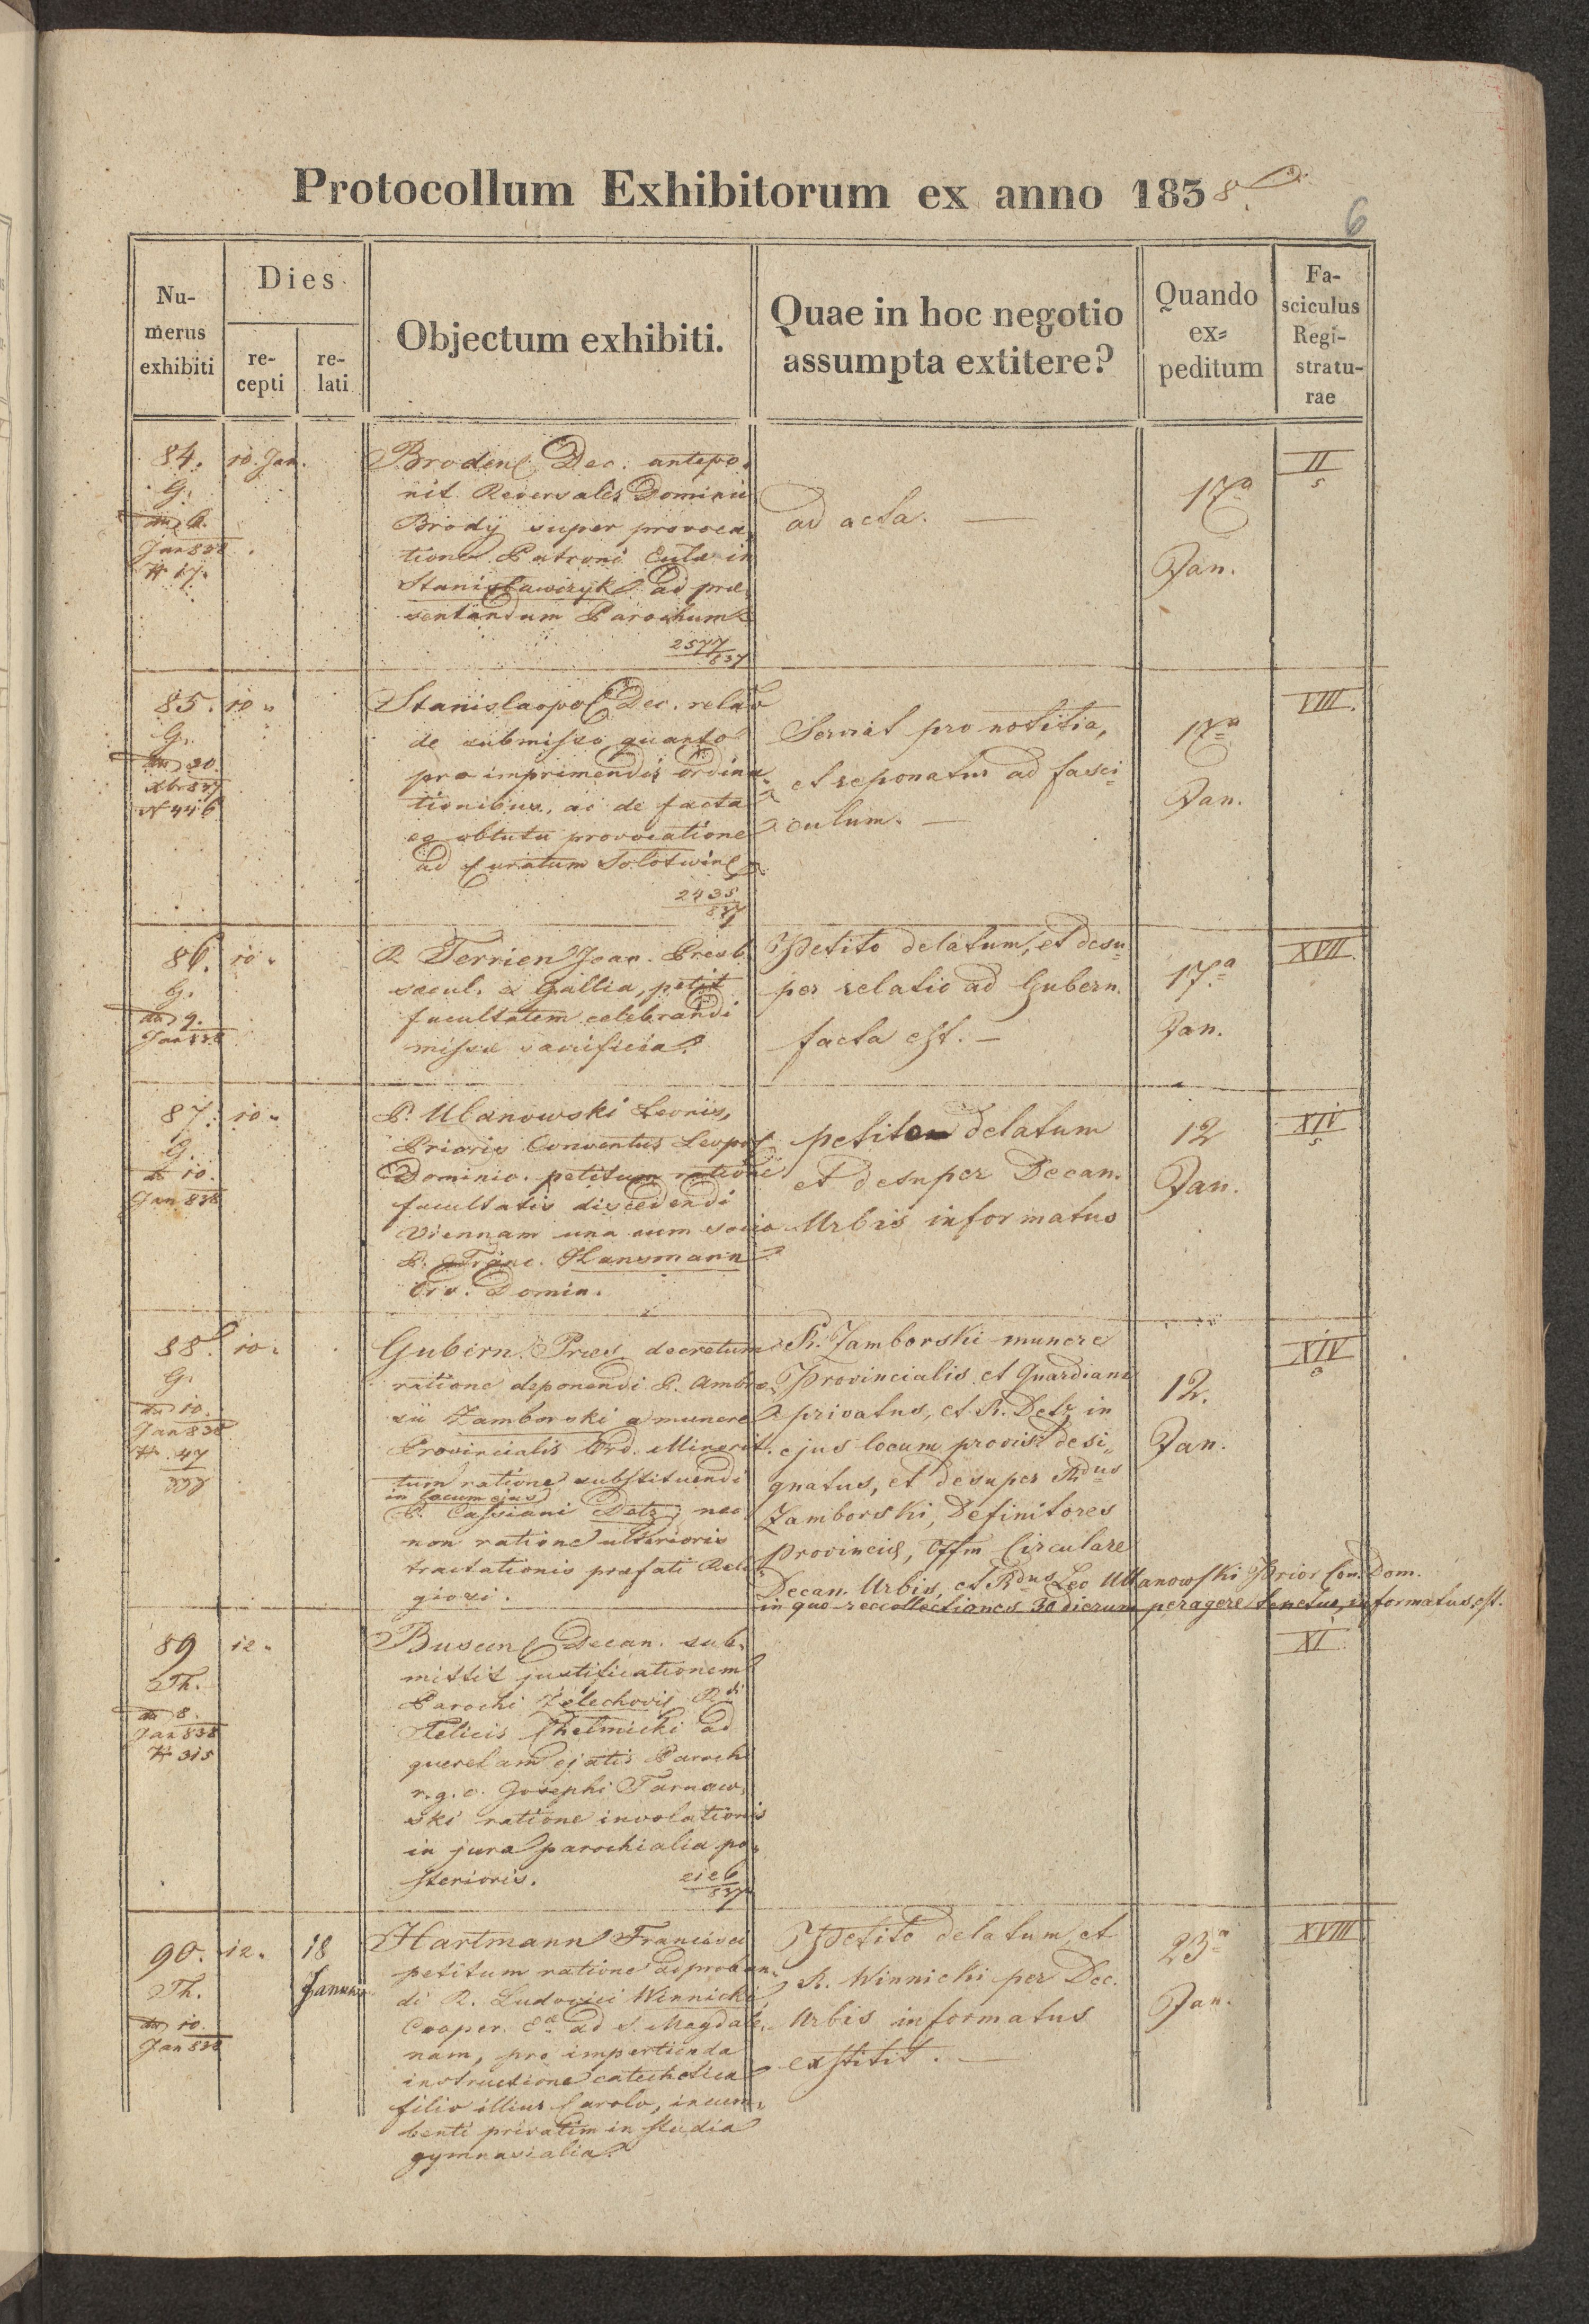 Protocollum Exhibitorum ex anno 1838.
6
Nu-
merus
exhibiti
Dies
re-
cepti
re-
lati
Objectum exhibiti.
Quae in hoc negotio
assumpta extitere?
Quando
ex=
peditum
Fa-
sciculus
Regi-
stratu-
rae
84.
G.
6.
Jan 838
N 17.
10. Jan.
Broden Dec. antepo-
nit Reversales Dominii
Brody super provoca-
tione Patroni Eccl in
Stanisławczyk ad præ-
sentandum Parochum
2577/837
ad acta. —
17a
Jan.
II
5
85.
G.
20.
Xbr 837
N 446
10 "
Stanislaopol Dec. relatio
de submisso quanto
pro imprimendis ordina-
tionibus, ac de facta
eo obtutu provocatione
ad Curatum Solotwin
2435/837
Serviat pro notitia,
et reponatur ad fasci=
culum. —
17a
Jan.
VIII.
86.
G.
9.
Jan 838
10 "
R. Terrien Joan. Presb.
sæcul. e Gallia, petit
facultatem celebrandi
missæ sacrificia.
Petito delatum, et desu=
per relatio ad Gubern.
facta est. —
17.a
Jan.
XVII.
87.
G.
10.
Jan 838
10 "
P. Ulanowski Leonis,
Prioris Conventus Leopol
Dominic. petitum ratione
facultatis discedendi
Viennam una cum socio
P. Franc. Hansmann
Ord. Domin.
petito delatum
et desuper Decan.
Urbis informatus
12
Jan.
XIV
5
88.
G.
10.
Jan 838
N. 47
10 "
Gubern. Præs. decretum
ratione deponendi P. Ambro-
sii Zamborski a munere
Provincialis Ord. Minorit.
tum ratione substituendi
in locum ejus
P. Cassiani Detz, nec
non ratione ulterioris
tractationis præfati Reli-
giosi.
R. Zamborski munere
Provincialis et Guardiani
privatus, et R. Detz in
ejus locum provis desi=
gnatus, et desuper Rdus
Zamborski, Definitores
Provinciæ, Offm Circulare
Decan. Urbis, et Rdus Leo Ullanowski Prior Con. Dom.
in quo reccollectiones 30 dierum peragere tenetur, informatus est.
12.
Jan.
XIV
89
Th.
8.
Jan 838
N 315
12 "
Buscen Decan. sub-
mittit justificationem
Parochi Zelechovis Rdi
Felicis Chelmicki ad
querelam ejatis Parochi
r. g. c. Josephi Tarnaw-
ski ratione involationis
in jura parochialia po-
sterioris.
2126/837
XI
90.
Th.
10.
Jan 838
12 "
18
Januar
Hartmann Francisci
petitum ratione adproban-
di R. Ludovici Winnicki
Cooper. Eæ ad S. Magdale-
nam, pro impertienda
instructione catechetica
filio illius Carolo, incum-
benti privatim in studia
gymnasialia.
Petito delatum, et
R. Winnicki per Dec.
Urbis informatus
exstitit. —
23a
Jan.
XVIII